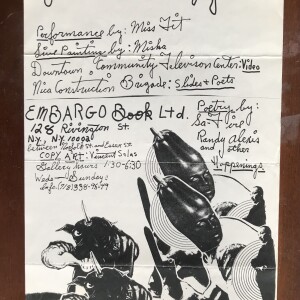 Performance by: Miss Fit
Live Painting by: Misha
Downtown Community Televison Center: Video
Nica Construction Brigade: Slides + Poets
EMBARGO Book Ltd.
128 Rivington St.
N.Y., N.Y. 10002
between Norfolk St. and Essex St.
COPY ART: Vincent Salas
Gallery hours 1:30-6:30
Weds - Sunday:
Poetry by:
Sa-Fire
Randy Alexis
and other
Happenings